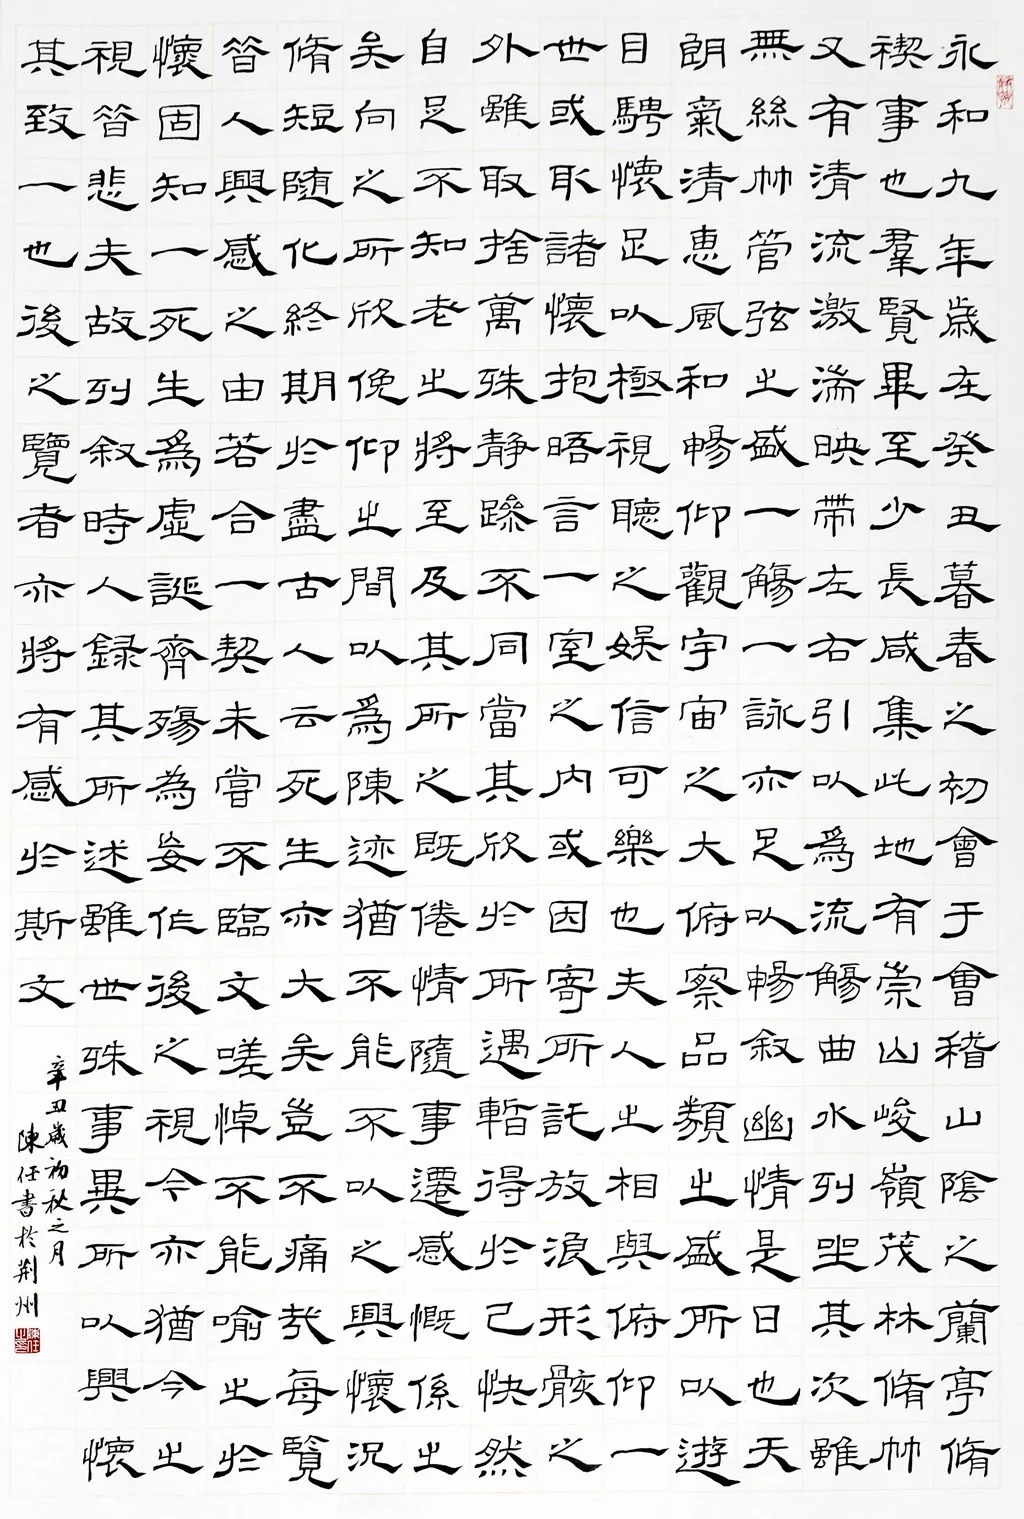 永和九年歲在癸丑暮春之初會于會稽山陰之蘭亭脩
禊事也羣賢畢至少長咸集此地有崇山峻嶺茂林脩竹
又有清流激湍映帶左右引以爲流觴曲水列坐其次雖
無絲竹管弦之盛一觴一詠亦足以暢叙幽情是日也天
朗氣清惠風和暢仰觀宇宙之大俯察品類之盛所以遊
目騁懷足以極視聽之娛信可樂也夫人之相與俯仰一
世或取諸懷抱晤言一室之内或因寄所託放浪形骸之
外雖取捨萬殊静躁不同當其欣於所遇暫得於己快然
自足不知老之將至及其所之既倦情隨事遷感慨係之
矣向之所欣俛仰之間以爲陳迹猶不能不以之興懷況
脩短隨化終期於盡古人云死生亦大矣豈不痛哉每覽
昔人興感之由若合一契未嘗不臨文嗟悼不能喻之於
懷固知一死生爲虛誕齊殤為妄作後之視今亦猶今之
視昔悲夫故列叙時人録其所述雖世殊事異所以興懷
其致一也後之覽者亦將有感於斯文
辛丑歲初秋之月
陳任書於荆州